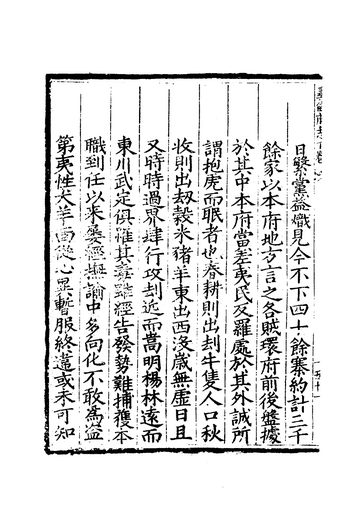 日繁黨益熾見今不下四十餘寨約計三千
餘家以本府地方言之各賊環府前後盤據
於其中本府當差夷民反羅處於其外誠所
謂抱虎而眠者也春耕則出刦牛隻人口秋
收則出刼穀米猪羊東出西沒歲無虛日且
又時時過界肆行攻刦近而嵩明楊林遠而
東川武定俱罹其毒雖經告發勢難捕獲本
職到任以來屢經撫諭中多向化不敢為盜
第夷性犬羊面從心異暫服終違或未可知